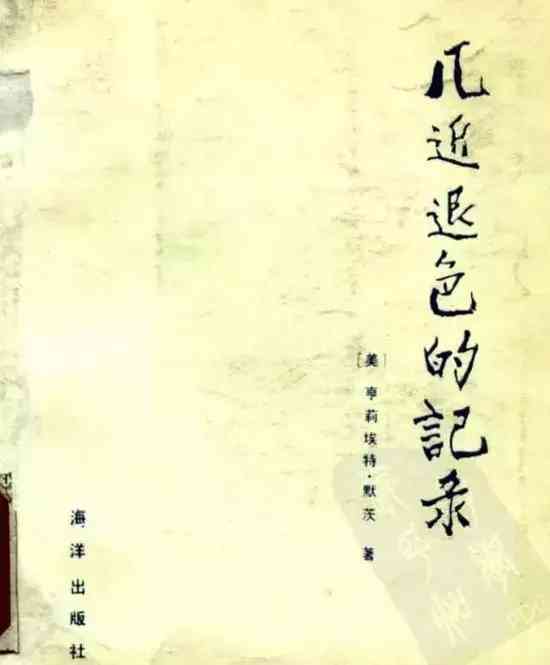 几近退色的記录
[美]亨莉埃特·默茨 著
海洋出版社